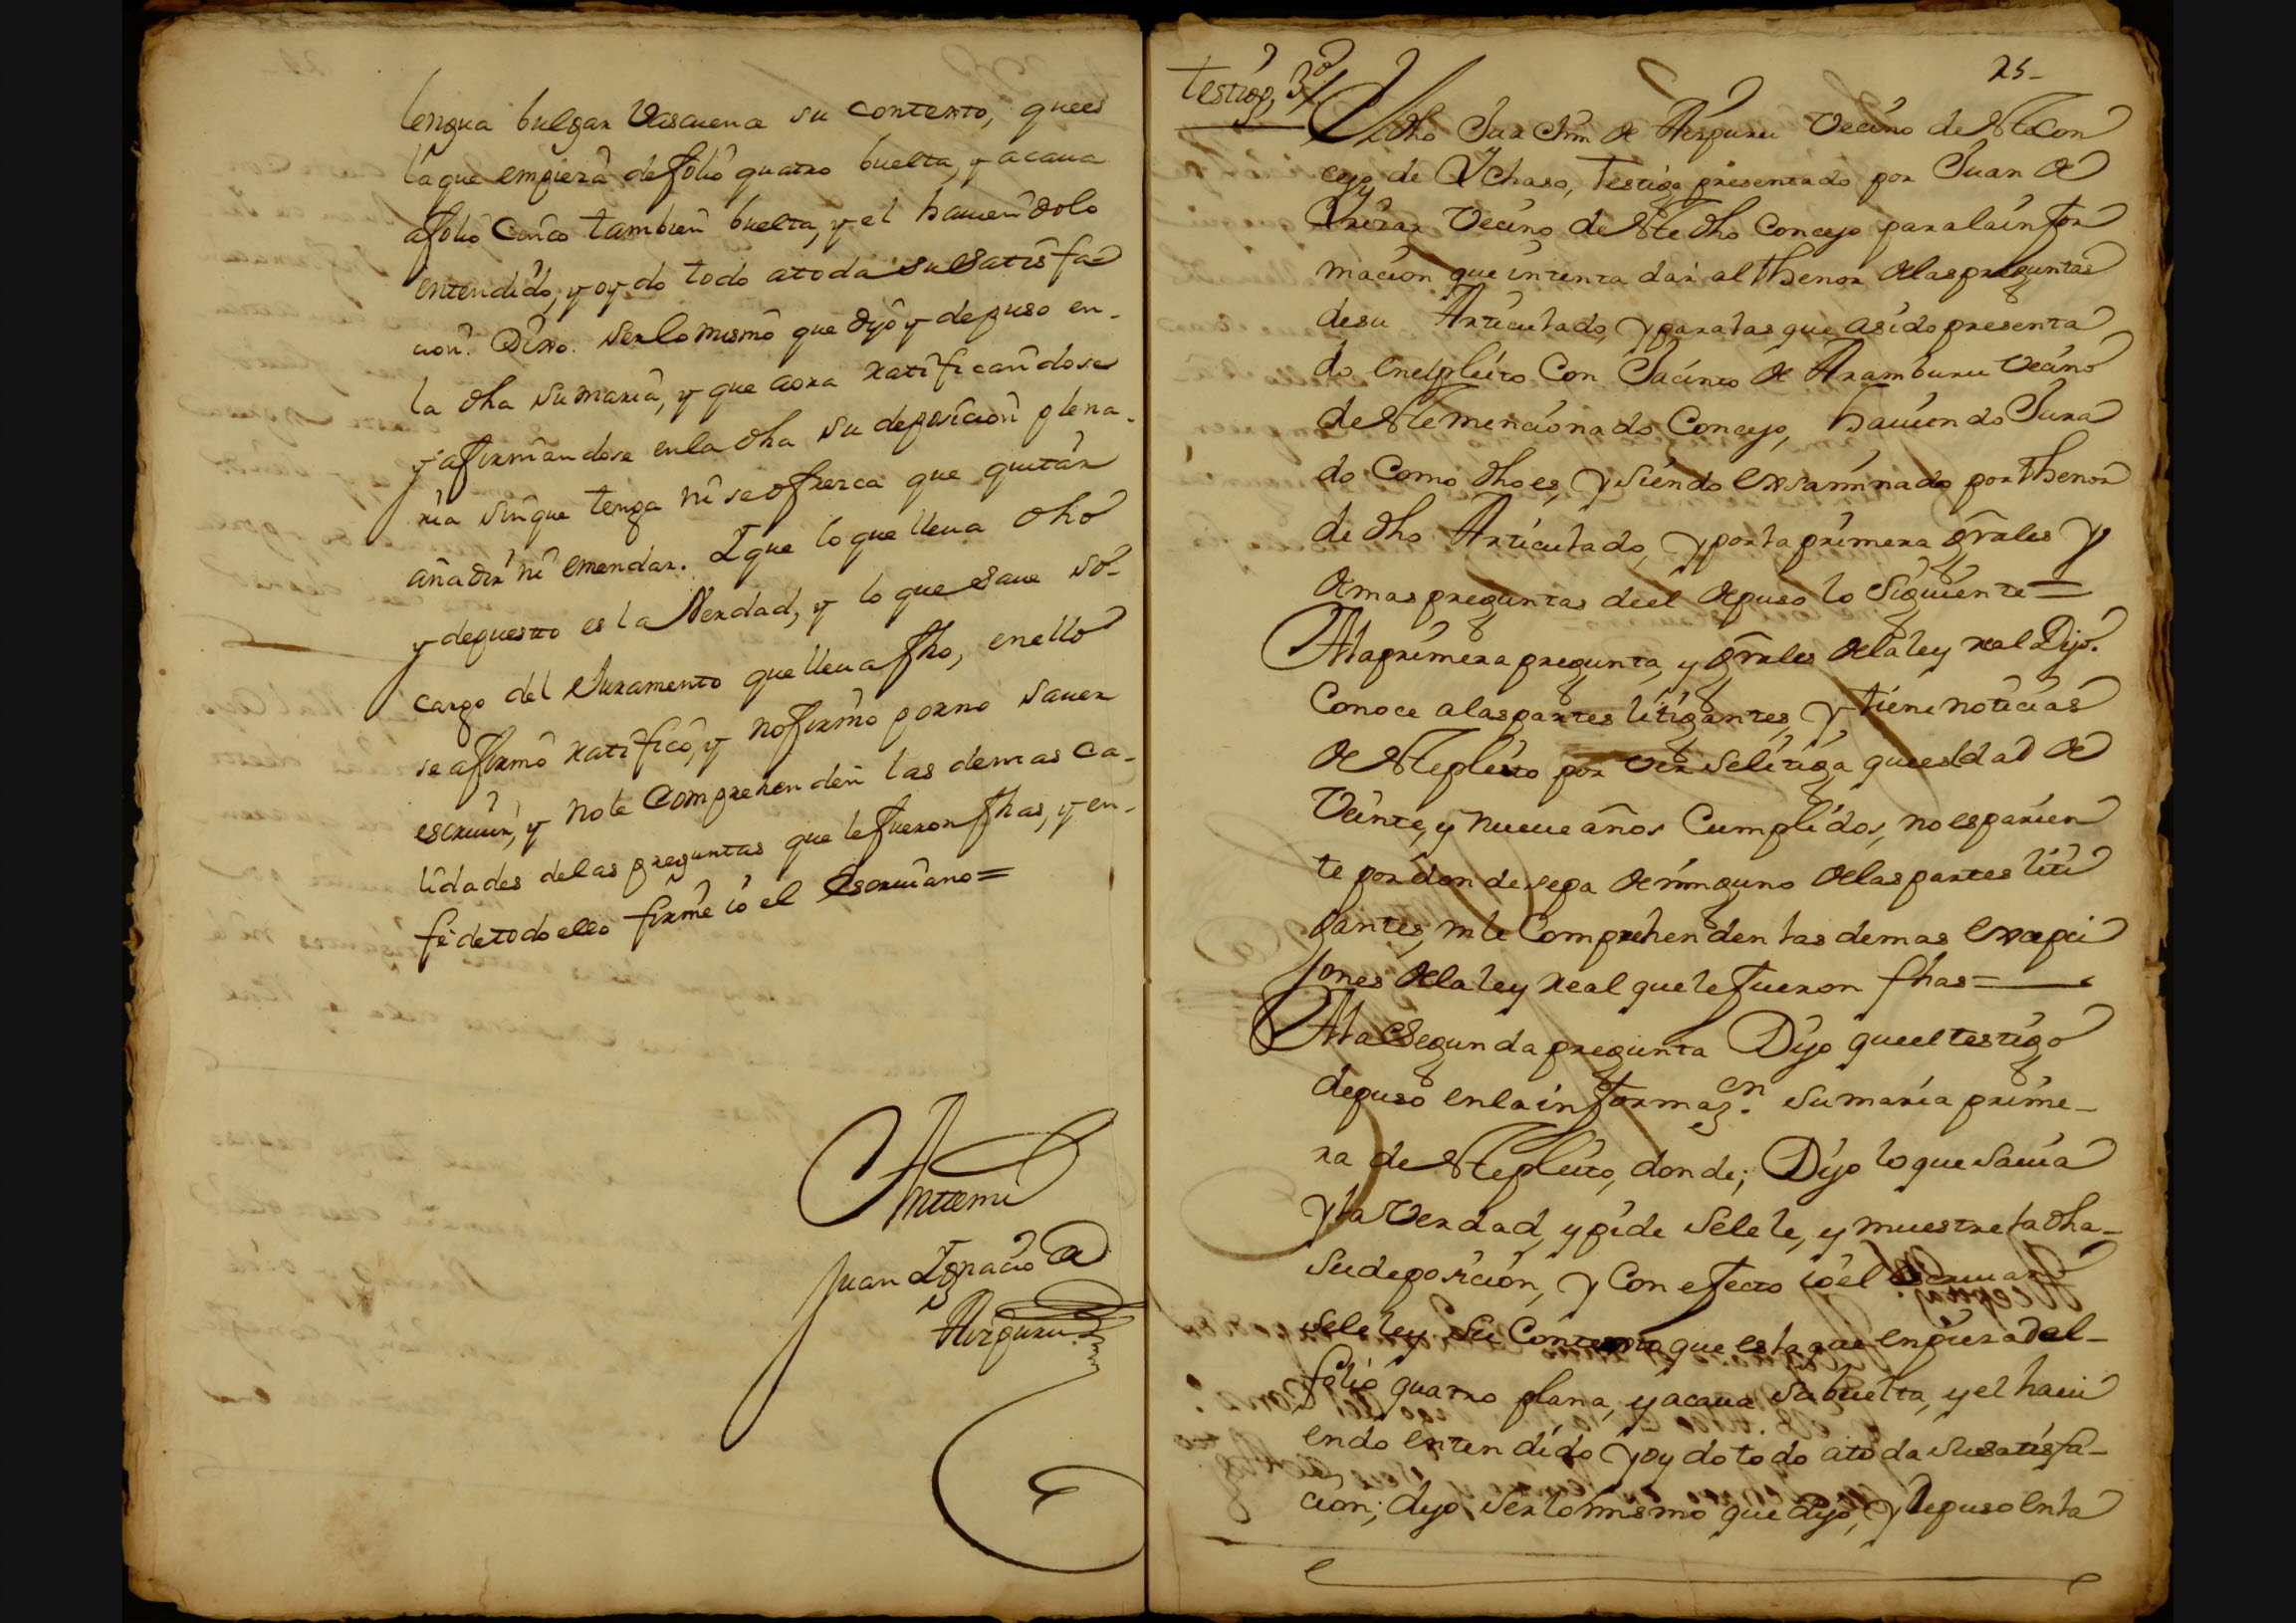 lengua bulgar Vascuence su contexto, quees
la que empieza de folio quatro buelta, y acaua
afolio Cinco tambien buelta, y el hauiendolo
entendido, y oydo todo atoda su Satisfa
cion: Dixo. ser lo mismo que dijo y depuso en-
la dha sumaria, y que aora ratificandose
y afirmandose enla dha su deposicion plena-
ria sin que tenga ni se ofrezca que quitar
añadir ni emendar. I que lo que lleua dho
y depuesto es la Verdad, y lo que saue so-
cargo del Juramento que lleua fho, enello
se afirmo ratifico, y nofirmo porno sauer
escriuir, y nole Comprehenden las demas ca-
lidades delas preguntas que le fueron fhas, y en-
fe de todo ello firme io el Escriuano=
Antemi
Juan Ignacio de
Aizpuru
25-
testigo, 3º/
El dho Juachim de Aizpuru Vecino de este Con
cejo de Ychaso, testigo presentado por Juan de
Vecino de este dho Concejo para la infor
macion que intenta dar al thenor de las preguntas
desu Articulado, y para las que asido presenta
do enelpleito Con Jacinto de Aramburu Vecino
de este mencionado Concejo, hauiendo Jura
do Como dho es, y siendo Exsaminado por thenor
de dho Articulado, y por la primera grales y
demas preguntas de el depuso lo Siguiente=
Ala primera pregunta, y grales dela ley real Dijo.
Conoce alas partes litigantes, y tiene noticias
de este pleito por ver selitiga, que es edad de
Veinte, y nueue años Cumplidos, no es parien
te por donde sepa de ninguno delas partes liti
gantes, ni le Comprehenden las demas excepci
ones dela ley real que le fueron fhas=
Ala Segunda pregunta Dijo que el testigo
depuso enla informazon. sumaria prime-
ra de este pleito, donde; Dijo lo que sauia
y la Verdad, y pide sele le, y muestre la dha-
su deposicion, y Con efecto io el Escriuano
sele ley su Contexto que es la que enpieza del-
folio quatro plana, y acaua su buelta, y el haui
endo entendido y oydo todo atoda susatisfa-
cion; dijo ser lo mismo que dijo, y depuso enla